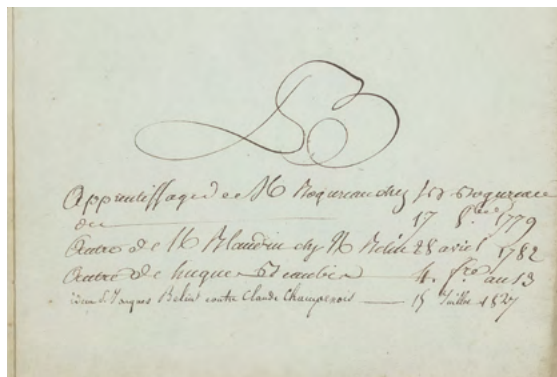 B
Apprentissage de N Boqureau chez
du 17 1779
Autre de N Blaudin chez N Belin 28 avril 1782
Autre de hugues 4. fre an 13
idem d. Jacques Belin contre Claude Champenois 15 Juillet 1827